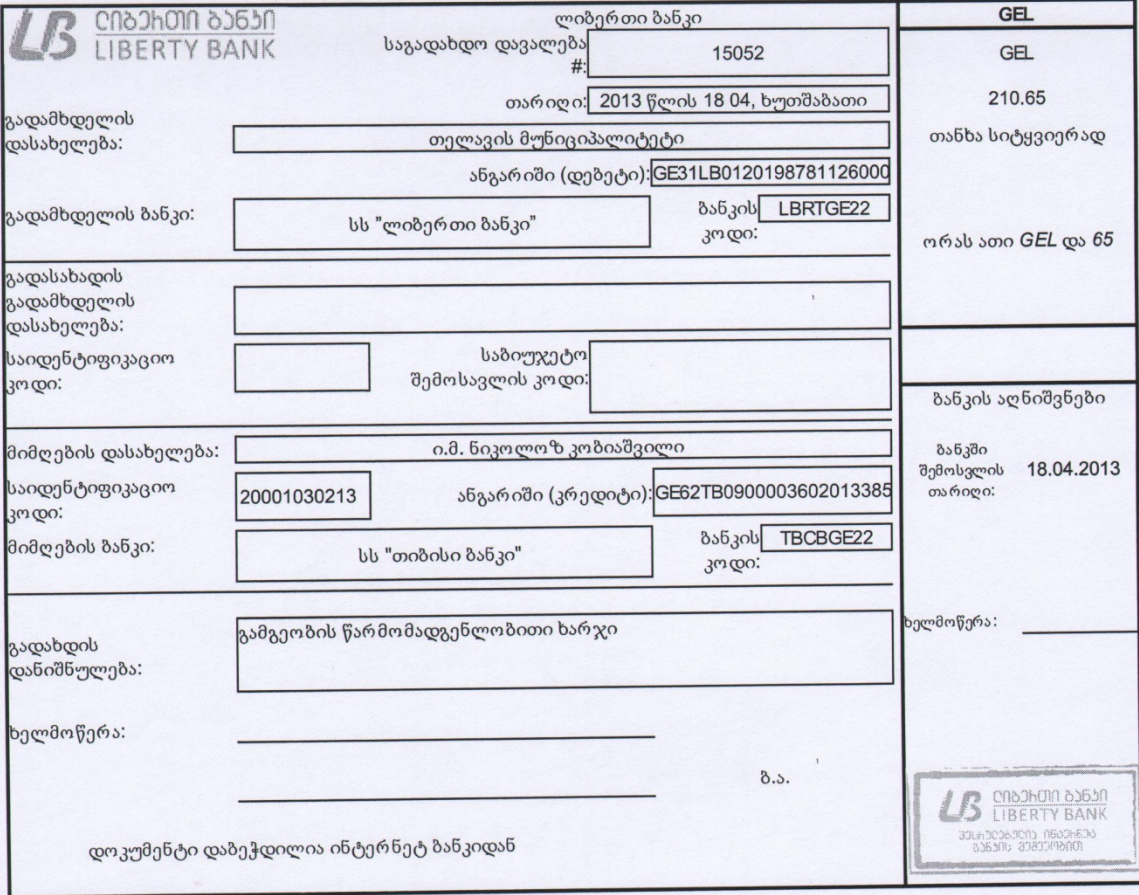 ლიბერთი ბანკი
LIBERTY BANK
ლიბერთი ბანკი
საგადახდო დავალება #: 15052
თარიღი: 2013 წლის 18 04, ხუთშაბათი
გადამხდელის დასახელება: თელავის მუნიციპალიტეტი
ანგარიში (დებეტი): GE31LB0120198781126000
გადამხდელის ბანკი: სს "ლიბერთი ბანკი"
ბანკის კოდი: LBRTGE22
გადასახადის გადამხდელის დასახელება:
საიდენტიფიკაციო კოდი:
საბიუჯეტო შემოსავლის კოდი:
მიმღების დასახელება: ი.მ. ნიკოლოზ კობიაშვილი
საიდენტიფიკაციო კოდი: 20001030213
ანგარიში (კრედიტი): GE62TB0900003602013385
მიმღების ბანკი: სს "თიბისი ბანკი"
ბანკის კოდი: TBCBGE22
გადახდის დანიშნულება: გამგეობის წარმომადგენლობითი ხარჯი
ხელმოწერა:
ბ.ა.
დოკუმენტი დაბეჭდილია ინტერნეტ ბანკიდან
GEL
GEL
210.65
თანხა სიტყვიერად
ორას ათი GEL და 65
ბანკის აღნიშვნები
ბანკში შემოსვლის თარიღი: 18.04.2013
ხელმოწერა:
ლიბერთი ბანკი
LIBERTY BANK
შესრულებულია ინტერნეტ
ბანკის მეშვეობით